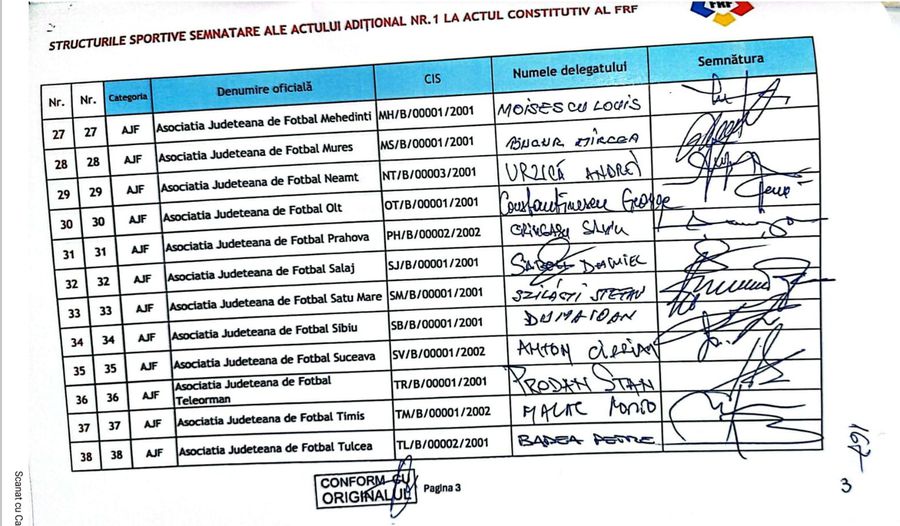 FRF
STRUCTURILE SPORTIVE SEMNATARE ALE ACTULUI ADIȚIONAL NR.1 LA ACTUL CONSTITUTIV AL FRF
Nr. Nr. Categoria Denumire oficială CIS Numele delegatului Semnătura
27 27 AJF Asociatia Judeteana de Fotbal Mehedinti MH/B/00001/2001 MOISESCU LOUIS
28 28 AJF Asociatia Judeteana de Fotbal Mures MS/B/00001/2001 MIRCEA
29 29 AJF Asociatia Judeteana de Fotbal Neamt NT/B/00003/2001 URZICĂ ANDREI
30 30 AJF Asociatia Judeteana de Fotbal Olt OT/B/00001/2001 Constantinescu George
31 31 AJF Asociatia Judeteana de Fotbal Prahova PH/B/00002/2002 SILVIU
32 32 AJF Asociatia Judeteana de Fotbal Salaj SJ/B/00001/2001 DANIEL
33 33 AJF Asociatia Judeteana de Fotbal Satu Mare SM/B/00001/2001 SZILAGYI STEFAN
34 34 AJF Asociatia Judeteana de Fotbal Sibiu SB/B/00001/2001 IOAN
35 35 AJF Asociatia Judeteana de Fotbal Suceava SV/B/00001/2002 ANTON CIPRIAN
36 36 AJF Asociatia Judeteana de Fotbal TR/B/00001/2001 PRODAN STAN
Teleorman
37 37 AJF Asociatia Judeteana de Fotbal Timis TM/B/00001/2002
38 38 AJF Asociatia Judeteana de Fotbal Tulcea TL/B/00002/2001 BADEA PETRE
CONFORM CU
ORIGINALUL
Pagina 3
3
Scanat cu Ca